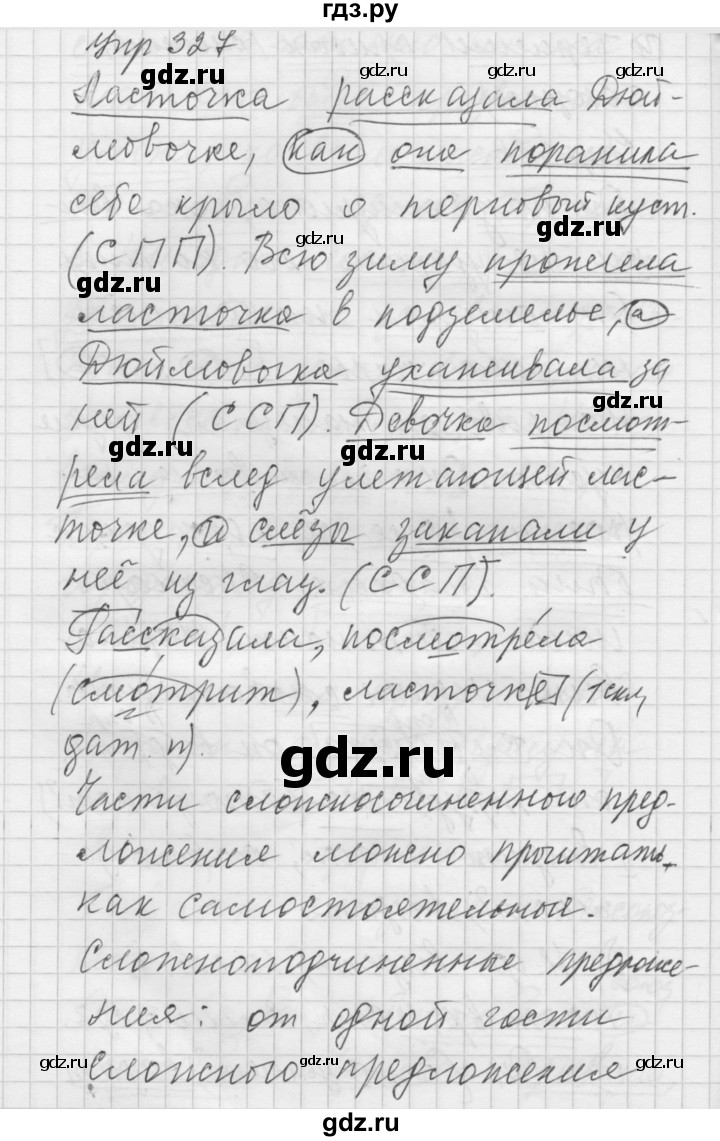 гдз.ру
Упр 327
Ласточка рассказала Дюй-
мовочке, как она поранила
себе крыло о терновый куст.
(СПП). Всю зиму прожила
ласточка в подземелье, а
Дюймовочка ухаживала за
ней (ССП). Девочка посмот-
рела вслед улетающей лас-
точке, и слёзы закапали у
неё из глаз. (ССП).
Рассказала, посмотрела
(смотрит), ласточке (1 скл,
дат. п).
Части сложносочиненного пред-
ложения можно прочитать,
как самостоятельные.
Сложноподчиненные предложе-
ния: от одной части
сложного предложения
gdz.ru